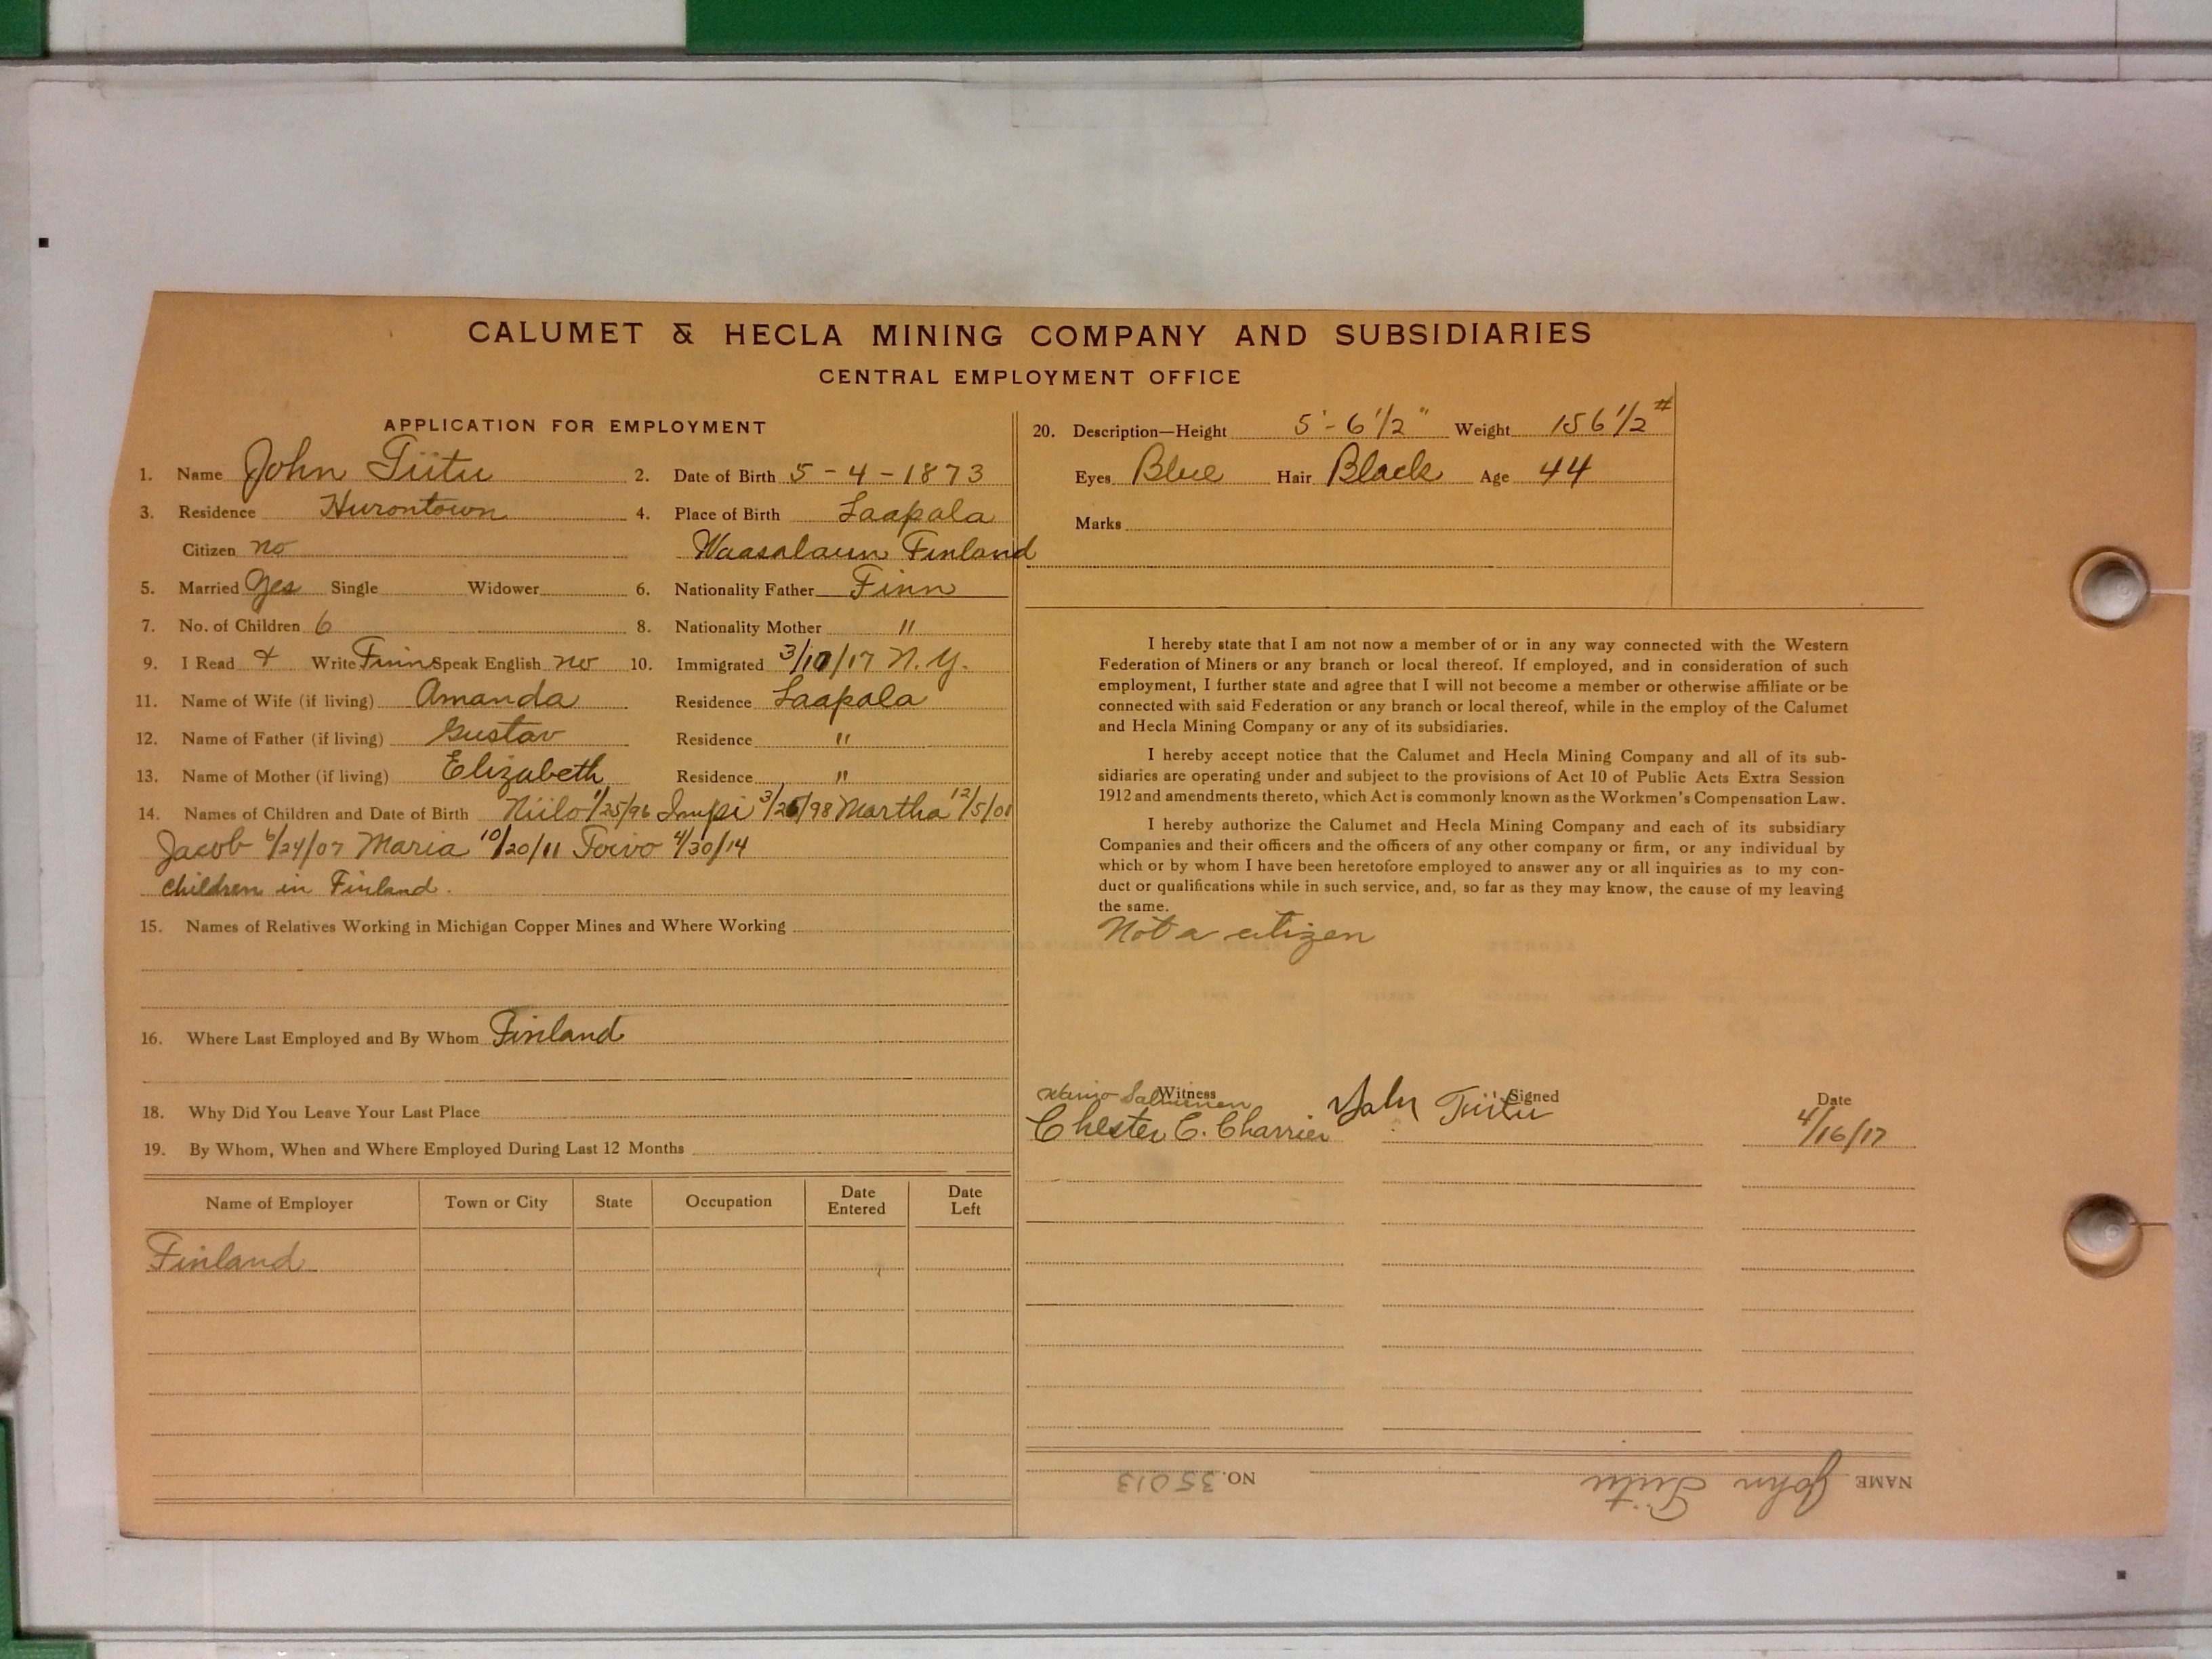 CALUMET & HECLA MINING COMPANY AND SUBSIDIARIES
CENTRAL EMPLOYMENT OFFICE
APPLICATION FOR EMPLOYMENT
1. Name John Tiitu 2. Date of Birth 5-4-1873
3. Residence Hurontown 4. Place of Birth Laapala
Citizen no Waasalaun Finland
5. Married Yes Single Widower 6. Nationality Father Finn
7. No. of Children 6 8. Nationality Mother "
9. I Read + Write Finn Speak English no 10. Immigrated 3/10/17 N.Y.
11. Name of Wife (if living) Amanda Residence Laapala
12. Name of Father (if living) Gustav Residence "
13. Name of Mother (if living) Elizabeth Residence "
14. Names of Children and Date of Birth Niilo 1/25/96 Impi 3/26/98 Martha 12/5/01
Jacob 6/24/07 Maria 10/20/11 Toivo 4/30/14
children in Finland.
15. Names of Relatives Working in Michigan Copper Mines and Where Working
16. Where Last Employed and By Whom Finland
18. Why Did You Leave Your Last Place
19. By Whom, When and Where Employed During Last 12 Months
Name of Employer Town or City State Occupation Date Entered Date Left
Finland
20. Description—Height 5'-6 1/2" Weight 156 1/2#
Eyes Blue Hair Black Age 44
Marks
I hereby state that I am not now a member of or in any way connected with the Western
Federation of Miners or any branch or local thereof. If employed, and in consideration of such
employment, I further state and agree that I will not become a member or otherwise affiliate or be
connected with said Federation or any branch or local thereof, while in the employ of the Calumet
and Hecla Mining Company or any of its subsidiaries.
I hereby accept notice that the Calumet and Hecla Mining Company and all of its sub-
sidiaries are operating under and subject to the provisions of Act 10 of Public Acts Extra Session
1912 and amendments thereto, which Act is commonly known as the Workmen's Compensation Law.
I hereby authorize the Calumet and Hecla Mining Company and each of its subsidiary
Companies and their officers and the officers of any other company or firm, or any individual by
which or by whom I have been heretofore employed to answer any or all inquiries as to my con-
duct or qualifications while in such service, and, so far as they may know, the cause of my leaving
the same.
Not a citizen
Witness Signed Date
Salminen
Chester E. Charrier John Tiitu 4/16/17
NAME John Tiitu NO. 35013